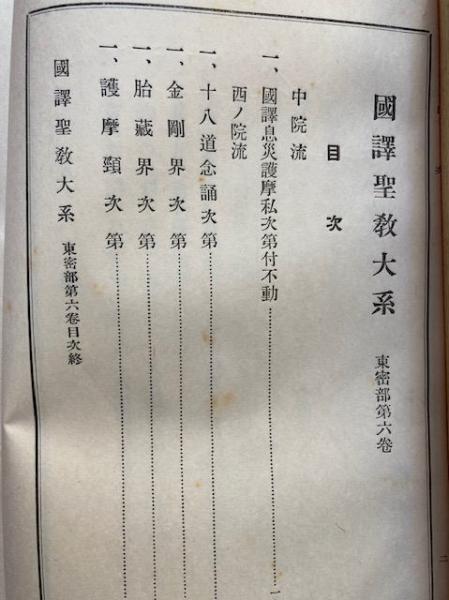 國譯聖教大系 東密部第六卷
目次
中院流
一、國譯息災護摩私次第付不動……一
西ノ院流
一、十八道念誦次第……
一、金剛界次第……
一、胎藏界次第……
一、護摩頸次第……
國譯聖教大系 東密部第六卷目次終
二